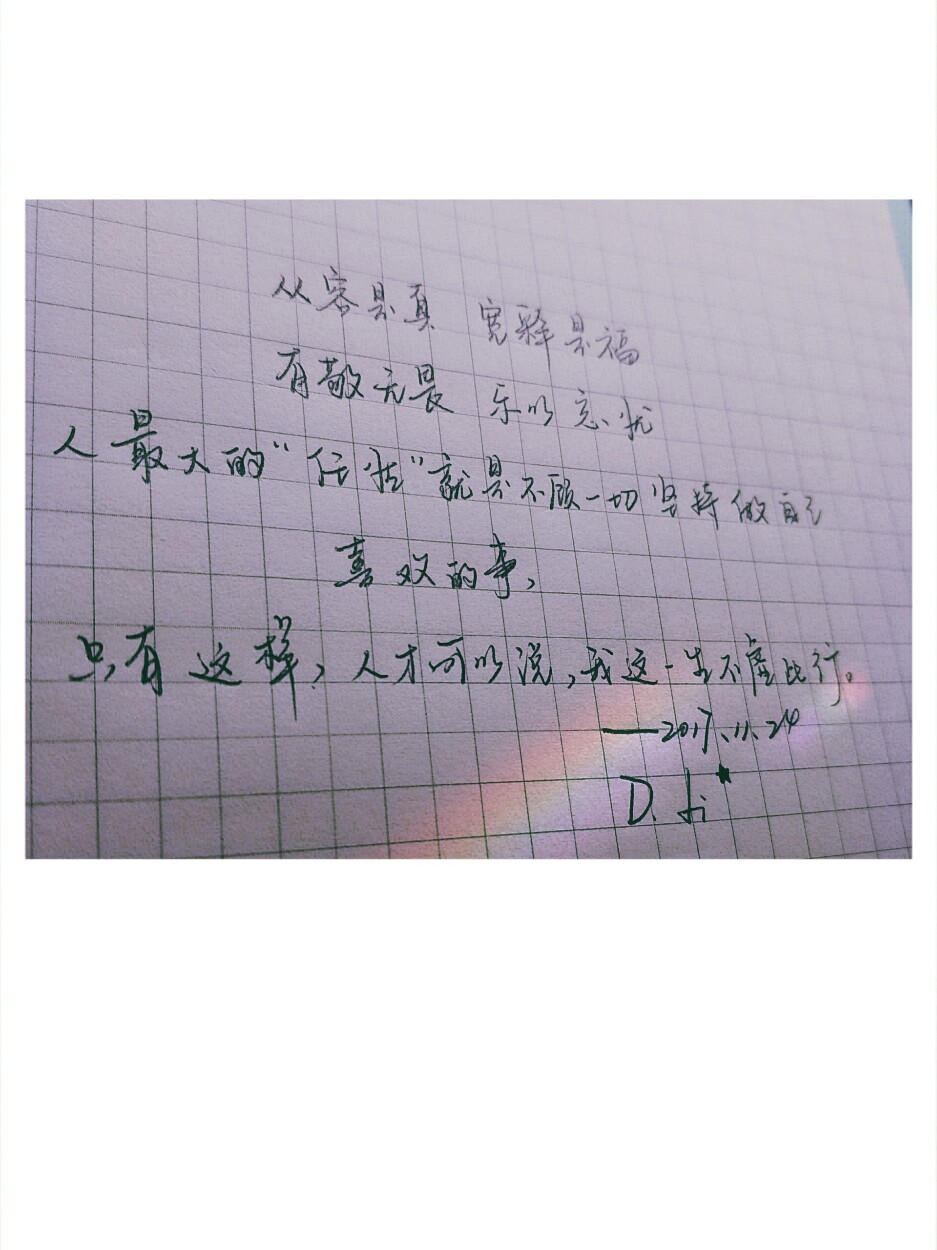 从容是真 宽释是福
有敬无畏 乐以忘忧
人最大的“任性”就是不顾一切坚持做自己
喜欢的事,
只有这样,人才可以说,我这一生不虚此行。
——2017.11.24
D. Li